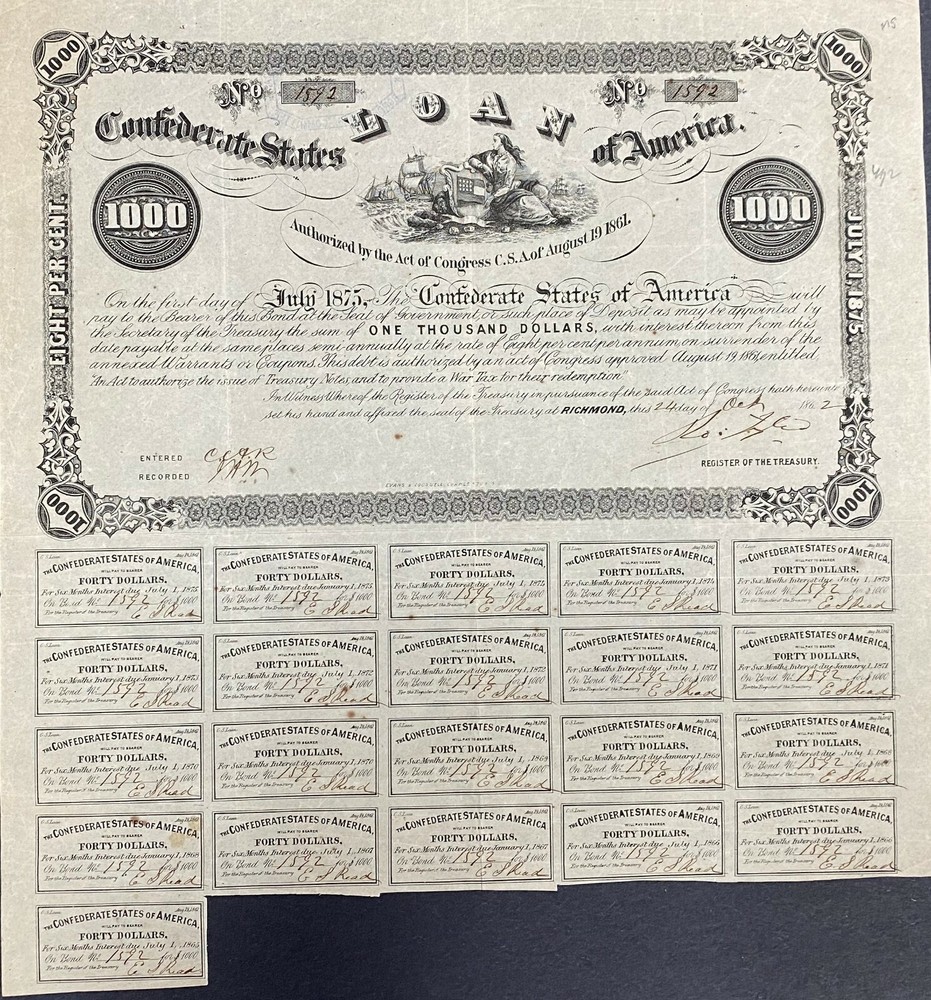 1000
1000
No 1592
No 1592
LOAN
Confederate States of America.
1000
1000
EIGHT PER CENT.
JULY 1, 1875.
Authorized by the Act of Congress C.S.A. of August 19 1861.
On the first day of July 1875, The Confederate States of America will
pay to the Bearer of this Bond at the Seat of Government, or such place of Deposit as may be appointed by
the Secretary of the Treasury the sum of ONE THOUSAND DOLLARS, with interest thereon from this
date payable at the same places semi-annually at the rate of Eight per cent per annum, on surrender of the
annexed Warrants or Coupons. This debt is authorized by an act of Congress approved August 19, 1861, entitled
"An Act to authorize the issue of Treasury Notes, and to provide a War Tax for their redemption"
In Witness Whereof the Register of the Treasury in pursuance of the said Act of Congress hath hereunto
set his hand and affixed the seal of the Treasury at RICHMOND, this 24 day of Oct 1862
ENTERED
RECORDED
REGISTER OF THE TREASURY.
1000
1000
THE CONFEDERATE STATES OF AMERICA,
WILL PAY TO BEARER
FORTY DOLLARS,
For Six Months Interest due July 1, 1875
On Bond No 1592 for $1000
For the Register of the Treasury E S Read
THE CONFEDERATE STATES OF AMERICA,
WILL PAY TO BEARER
FORTY DOLLARS,
For Six Months Interest due January 1, 1875
On Bond No 1592 for $1000
For the Register of the Treasury E S Read
THE CONFEDERATE STATES OF AMERICA,
WILL PAY TO BEARER
FORTY DOLLARS,
For Six Months Interest due July 1,
On Bond No 1592 for $1000
For the Register of the Treasury E S Read
THE CONFEDERATE STATES OF AMERICA,
WILL PAY TO BEARER
FORTY DOLLARS,
For Six Months Interest due January 1,
On Bond No 1592 for $1000
For the Register of the Treasury E S Read
THE CONFEDERATE STATES OF AMERICA,
WILL PAY TO BEARER
FORTY DOLLARS,
For Six Months Interest due July 1, 1873
On Bond No 1592 for $1000
For the Register of the Treasury E S Read
THE CONFEDERATE STATES OF AMERICA,
WILL PAY TO BEARER
FORTY DOLLARS,
For Six Months Interest due January 1, 1873
On Bond No 1592 for $1000
For the Register of the Treasury E S Read
THE CONFEDERATE STATES OF AMERICA,
WILL PAY TO BEARER
FORTY DOLLARS,
For Six Months Interest due July 1, 1872
On Bond No 1592 for $1000
For the Register of the Treasury E S Read
THE CONFEDERATE STATES OF AMERICA,
WILL PAY TO BEARER
FORTY DOLLARS,
For Six Months Interest due January 1, 1872
On Bond No 1592 for $1000
For the Register of the Treasury E S Read
THE CONFEDERATE STATES OF AMERICA,
WILL PAY TO BEARER
FORTY DOLLARS,
For Six Months Interest due July 1, 1871
On Bond No 1592 for $1000
For the Register of the Treasury E S Read
THE CONFEDERATE STATES OF AMERICA,
WILL PAY TO BEARER
FORTY DOLLARS,
For Six Months Interest due January 1, 1871
On Bond No 1592 for $1000
For the Register of the Treasury E S Read
THE CONFEDERATE STATES OF AMERICA,
WILL PAY TO BEARER
FORTY DOLLARS,
For Six Months Interest due July 1, 1870
On Bond No 1592 for $1000
For the Register of the Treasury E S Read
THE CONFEDERATE STATES OF AMERICA,
WILL PAY TO BEARER
FORTY DOLLARS,
For Six Months Interest due January 1, 1870
On Bond No 1592 for $1000
For the Register of the Treasury E S Read
THE CONFEDERATE STATES OF AMERICA,
WILL PAY TO BEARER
FORTY DOLLARS,
For Six Months Interest due July 1, 1869
On Bond No 1592 for $1000
For the Register of the Treasury E S Read
THE CONFEDERATE STATES OF AMERICA,
WILL PAY TO BEARER
FORTY DOLLARS,
For Six Months Interest due January 1, 1869
On Bond No 1592 for $1000
For the Register of the Treasury E S Read
THE CONFEDERATE STATES OF AMERICA,
WILL PAY TO BEARER
FORTY DOLLARS,
For Six Months Interest due July 1, 1868
On Bond No 1592 for $1000
For the Register of the Treasury E S Read
THE CONFEDERATE STATES OF AMERICA,
WILL PAY TO BEARER
FORTY DOLLARS,
For Six Months Interest due January 1, 1868
On Bond No 1592 for $1000
For the Register of the Treasury E S Read
THE CONFEDERATE STATES OF AMERICA,
WILL PAY TO BEARER
FORTY DOLLARS,
For Six Months Interest due July 1, 1867
On Bond No 1592 for $1000
For the Register of the Treasury E S Read
THE CONFEDERATE STATES OF AMERICA,
WILL PAY TO BEARER
FORTY DOLLARS,
For Six Months Interest due January 1, 1867
On Bond No 1592 for $1000
For the Register of the Treasury E S Read
THE CONFEDERATE STATES OF AMERICA,
WILL PAY TO BEARER
FORTY DOLLARS,
For Six Months Interest due July 1, 1866
On Bond No 1592 for $1000
For the Register of the Treasury E S Read
THE CONFEDERATE STATES OF AMERICA,
WILL PAY TO BEARER
FORTY DOLLARS,
For Six Months Interest due January 1, 1866
On Bond No 1592 for $1000
For the Register of the Treasury E S Read
THE CONFEDERATE STATES OF AMERICA,
WILL PAY TO BEARER
FORTY DOLLARS,
For Six Months Interest due July 1, 1865
On Bond No 1592 for $1000
For the Register of the Treasury E S Read